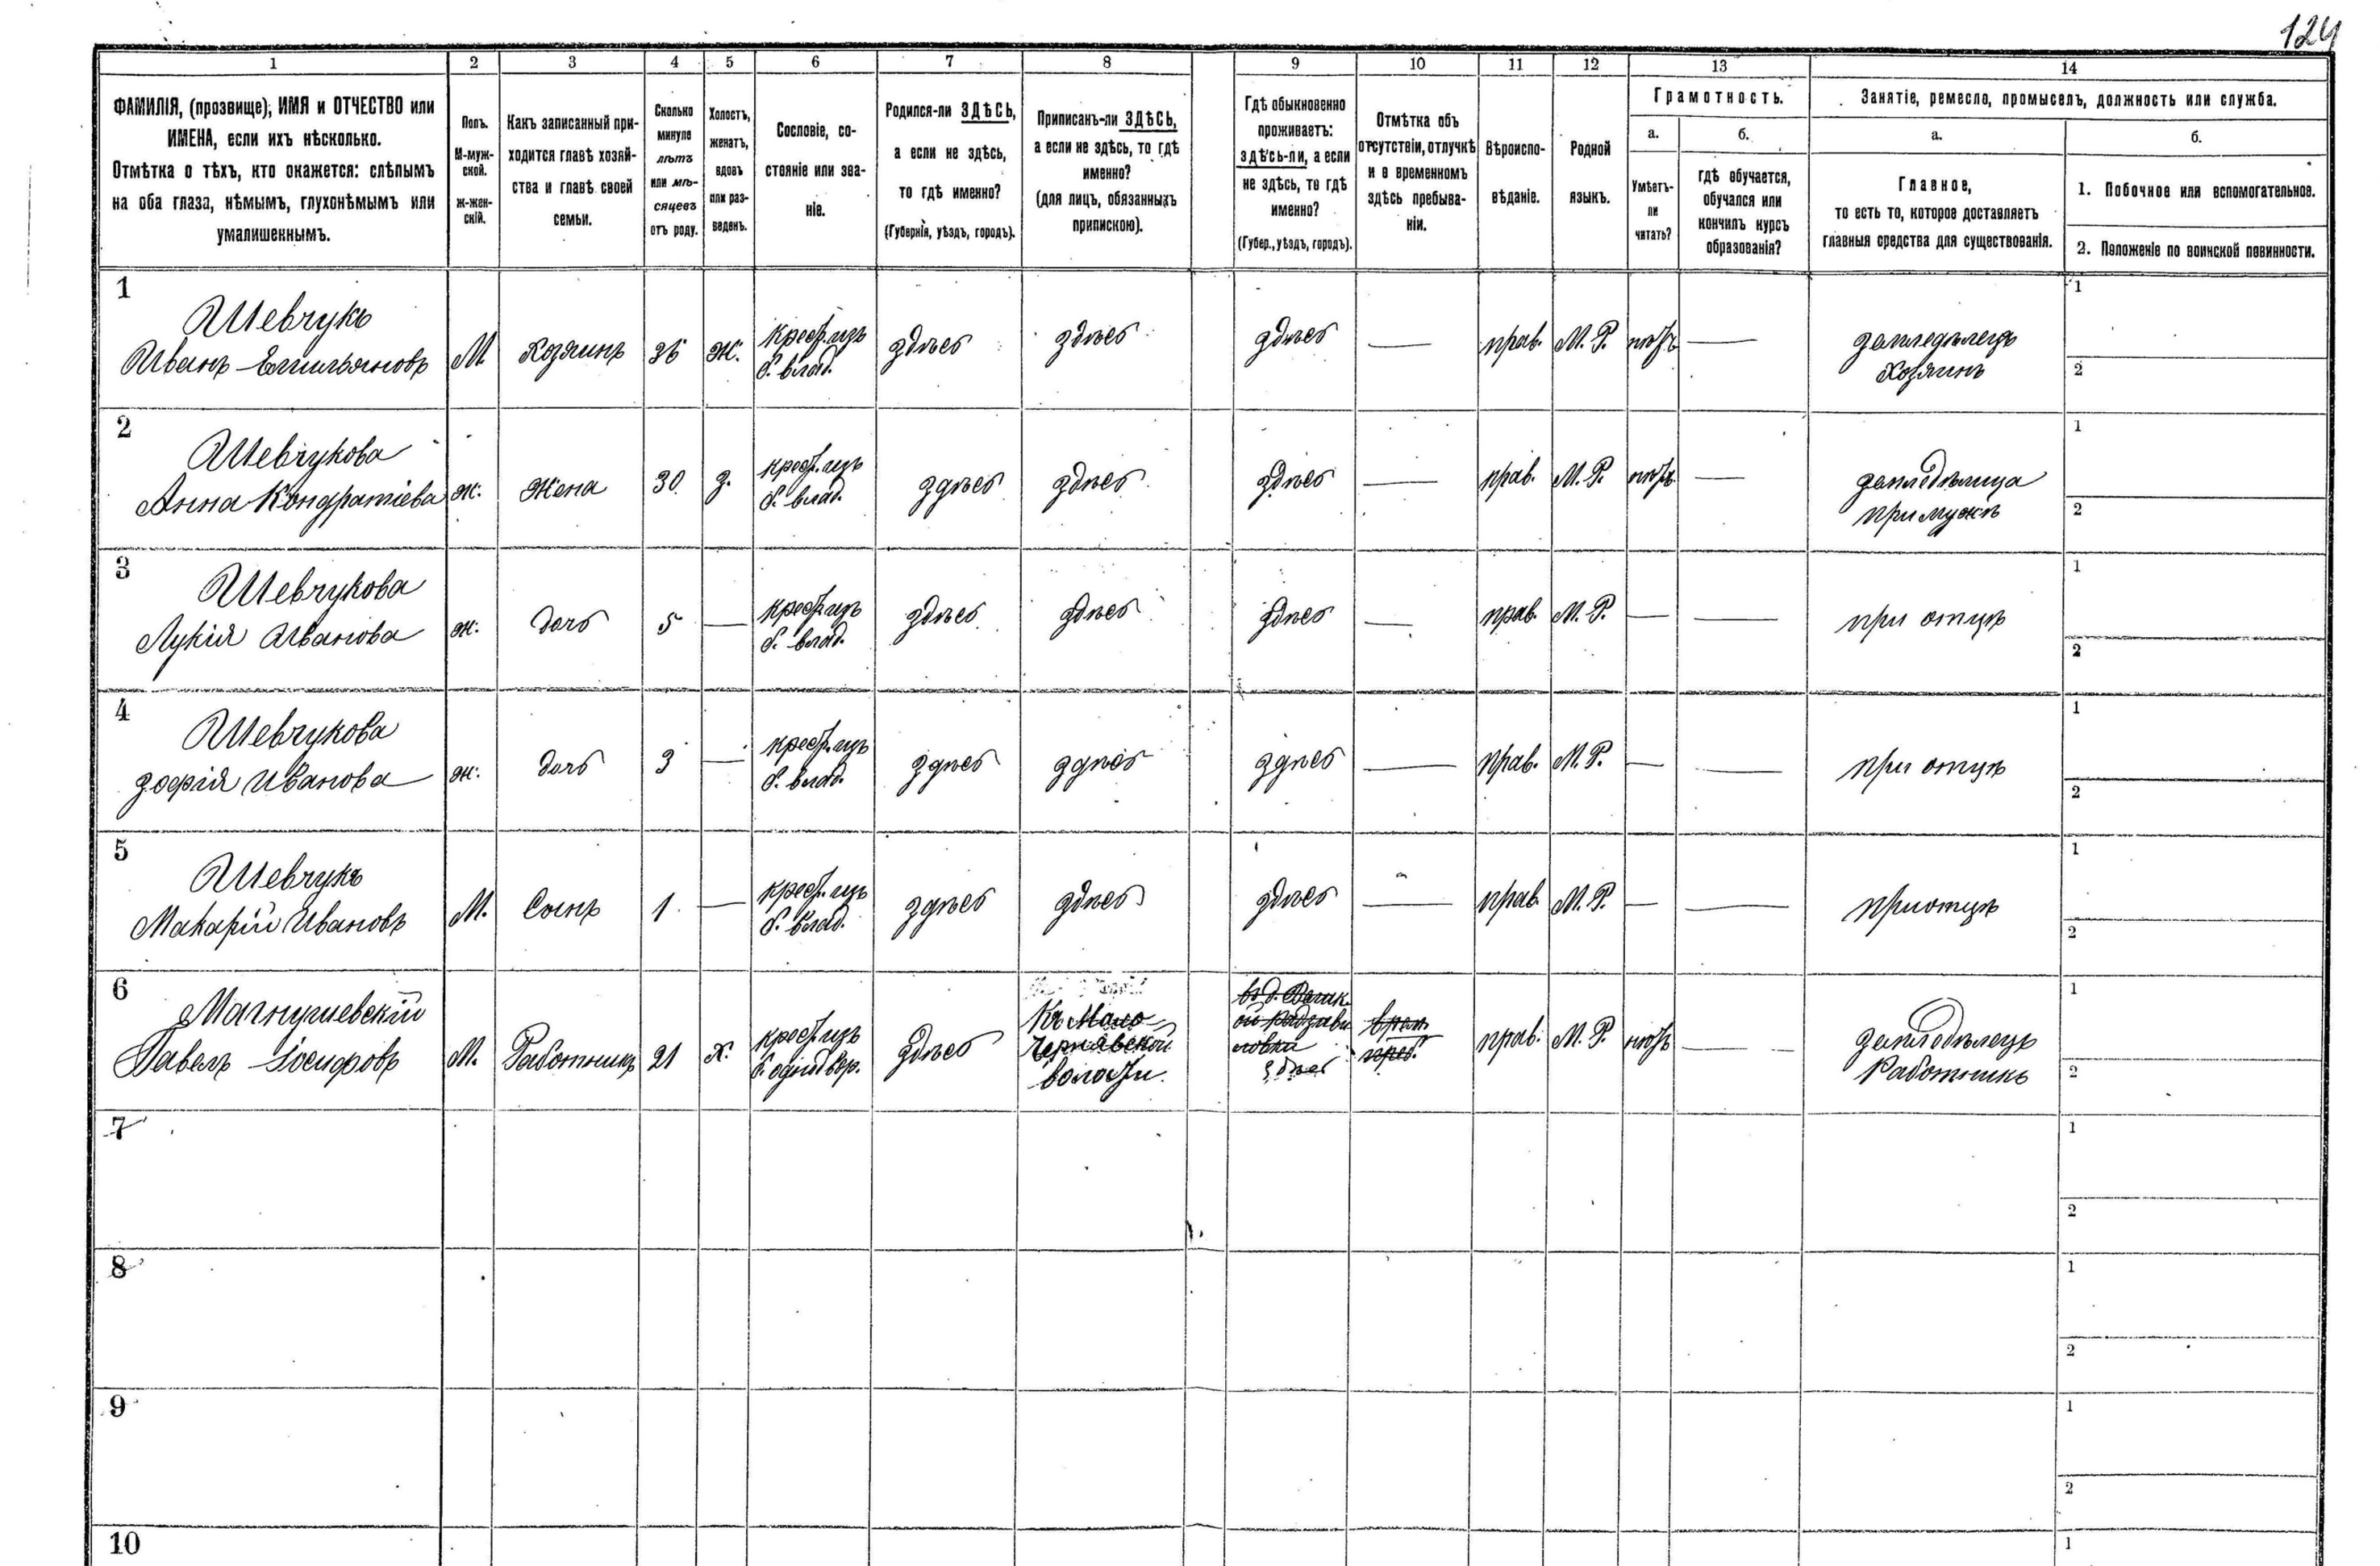 124
1 2 3 4 5 6 7 8 9 10 11 12 13 14
ФАМИЛІЯ, (прозвище), ИМЯ и ОТЧЕСТВО или
ИМЕНА, если ихъ нѣсколько.
Отмѣтка о тѣхъ, кто окажется: слѣпымъ
на оба глаза, нѣмымъ, глухонѣмымъ или
умалишеннымъ.
Полъ.
М-муж-
ской.
Ж-жен-
скій.
Какъ записанный при-
ходится главѣ хозяй-
ства и главѣ своей
семьи.
Сколько
минуло
лѣтъ
или мѣ-
сяцевъ
отъ роду.
Холостъ,
женатъ,
вдовъ
или раз-
веденъ.
Сословіе, со-
стояніе или зва-
ніе.
Родился-ли ЗДѢСЬ,
а если не здѣсь,
то гдѣ именно?
(Губернія, уѣздъ, городъ).
Приписанъ-ли ЗДѢСЬ,
а если не здѣсь, то гдѣ
именно?
(для лицъ, обязанныхъ
припискою).
Гдѣ обыкновенно
проживаетъ:
здѣсь-ли, а если
не здѣсь, то гдѣ
именно?
(Губер., уѣздъ, городъ).
Отмѣтка объ
отсутствіи, отлучкѣ
и о временномъ
здѣсь пребыва-
ніи.
Вѣроиспо-
вѣданіе.
Родной
языкъ.
Грамотность.
а.
Умѣетъ-
ли
читать?
б.
гдѣ обучается,
обучался или
кончилъ курсъ
образованія?
Занятіе, ремесло, промыселъ, должность или служба.
а.
Главное,
то есть то, которое доставляетъ
главныя средства для существованія.
б.
1. Побочное или вспомогательное.
2. Положеніе по воинской повинности.
1
Шевчукъ
Иванъ Емильяновъ
М
Хозяинъ
36
Ж.
крест. изъ
б. влад.
здѣсь
здѣсь
здѣсь
—
прав.
М. Р.
нѣтъ
—
земледѣлецъ
Хозяинъ
1
2
2
Шевчукова
Анна Кондратіева
ж.
Жена
30
з.
крест. изъ
б. влад.
здѣсь
здѣсь
здѣсь
—
прав.
М. Р.
нѣтъ
—
земледѣлица
при мужѣ
1
2
3
Шевчукова
Лукія Иванова
ж.
дочь
5
—
крест. изъ
б. влад.
здѣсь
здѣсь
здѣсь
—
прав.
М. Р.
—
—
при отцѣ
1
2
4
Шевчукова
Зофія Иванова
ж.
дочь
3
—
крест. изъ
б. влад.
здѣсь
здѣсь
здѣсь
—
прав.
М. Р.
—
—
при отцѣ
1
2
5
Шевчукъ
Макарій Ивановъ
М.
Сынъ
1
—
крест. изъ
б. влад.
здѣсь
здѣсь
здѣсь
—
прав.
М. Р.
—
—
при отцѣ
1
2
6
Павелъ Іосифовъ
М.
Работникъ
21
х.
крест. изъ
б. однодвор.
здѣсь
Къ Мало
Чернявской
волости.
здѣсь
врем.
преб.
прав.
М. Р.
нѣтъ
—
земледѣлецъ
Работникъ
1
2
7
1
2
8
1
2
9
1
2
10
1